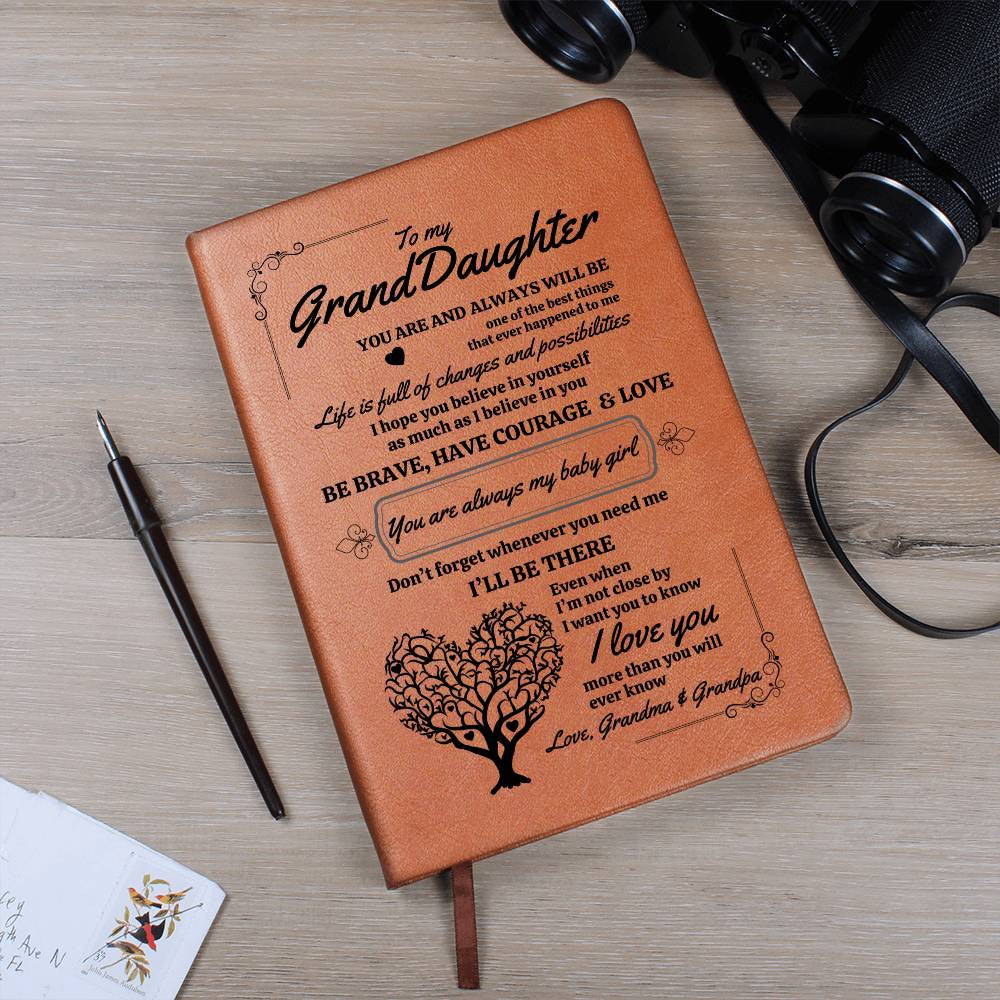 To my
GrandDaughter
YOU ARE AND ALWAYS WILL BE
one of the best things
that ever happened to me
Life is full of changes and possibilities
I hope you believe in yourself
as much as I believe in you
BE BRAVE, HAVE COURAGE & LOVE
You are always my baby girl
Don't forget whenever you need me
I'LL BE THERE
Even when
I'm not close by
I want you to know
I love you
more than you will
ever know
Love, Grandma & Grandpa
Ave N
FL
37
John James Audubon